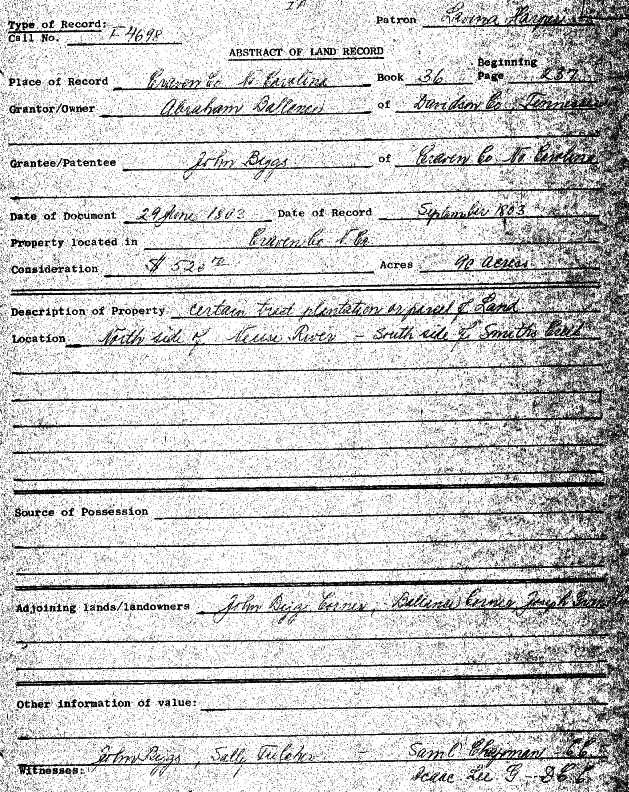 Type of Record:
Patron Lavina
Call No. F 4698
ABSTRACT OF LAND RECORD
Beginning
Place of Record Craven Co No Carolina Book 36 Page 237
Grantor/Owner Abraham Dallance of Davidson Co. Tennessee
Grantee/Patentee John Biggs of Craven Co No Carolina
Date of Document 29 June 1803 Date of Record September 1803
Property located in Craven Co N. Ca
Consideration $ 520 Acres 90 acres
Description of Property certain tract plantation or parcel of Land
Location North side of Neuse River - South side of Smiths Creek
Source of Possession
Adjoining lands/landowners John Biggs Corner, Ballance Corner, Joseph
Other information of value:
John Biggs, Sally Fulcher - Saml Chapman CC
Witnesses: Isaac Lee